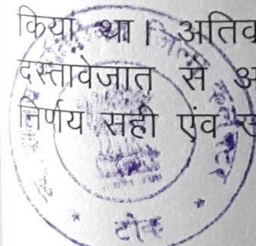 किया था। अतिव
दस्तावेजात से अ
निर्णय सही एंव स
टोंक